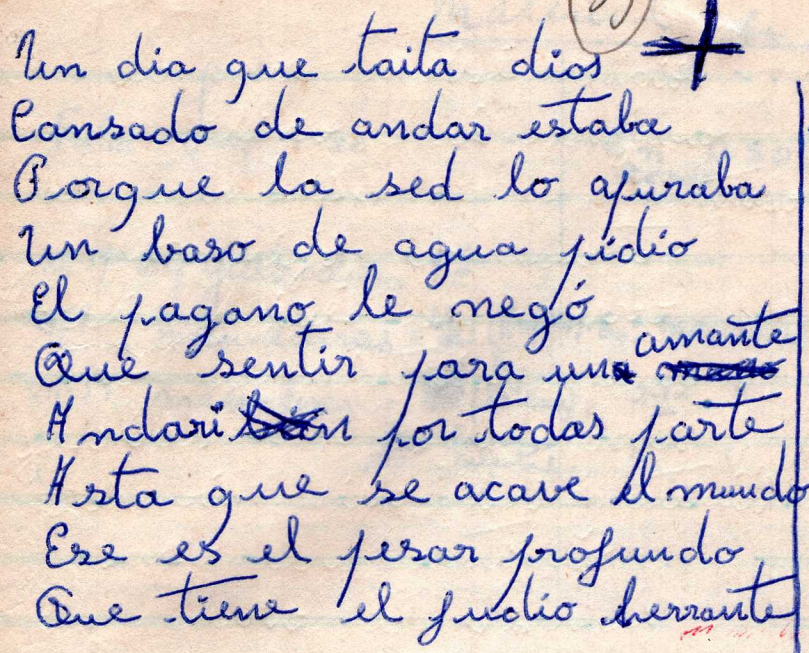 Un dia que taita dios
Cansado de andar estaba
Porque la sed lo apuraba
Un baso de agua pidio
El pagano le negó
Que sentir para una amante
Andari por todas parte
Asta que se acave el mundo
Ese es el pesar profundo
Que tiene el judio herrante